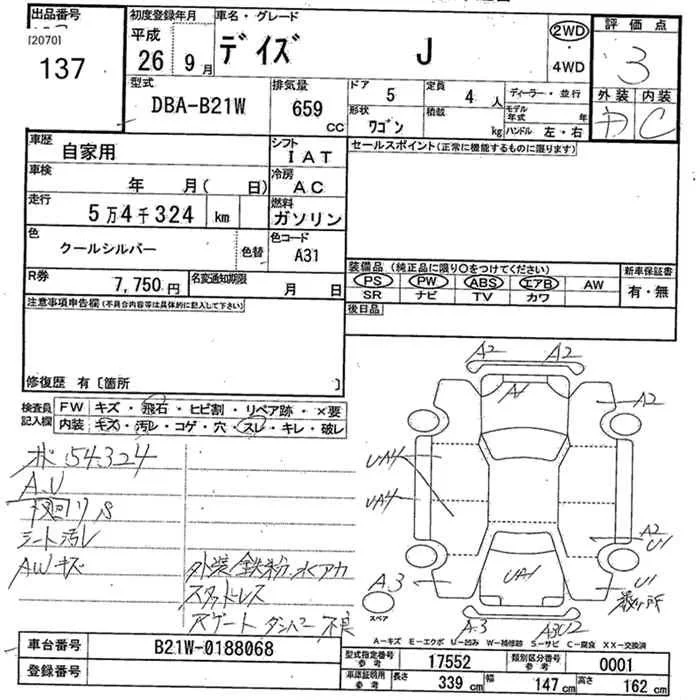 出品番号
[2070]
137
初度登録年月
平成
26年 9月
車名・グレード
デイズ J
2WD
・
4WD
評価点
3
外装 内装
C
型式
DBA-B21W
排気量
659 cc
ドア
5
形状
ワゴン
定員
4 人
積載
kg
ディーラー・並行
モデル年式 年
ハンドル 左・右
車歴
自家用
シフト
IAT
車検
年 月( 日)
冷房
AC
走行
5万4千324 km
燃料
ガソリン
色
クールシルバー
色替
色コード
A31
R券
7,750円
名変通知期限
月 日
セールスポイント(正常に機能するものに限ります)
装備品 (純正品に限り○をつけてください)
PS PW ABS エアB AW
SR ナビ TV カワ
新車保証書
有・無
後日品
注意事項申告欄(不具合内容等は具体的に記入して下さい)
修復歴 有〔箇所 〕
検査員
記入欄
FW キズ・飛石・ヒビ割・リペア跡・×要
内装 キズ・汚レ・コゲ・穴・スレ・キレ・破レ
54,324
シート汚レ
AWキズ
外装鉄粉、水アカ
スタッドレス
A2 A2
A1
A2
UA4
UA4
A2
U1
U1
UA1
A3
スペア
A3
A3U2
A-キズ E-エクボ U-凹み W-補修跡 S-サビ C-腐食 XX-交換済
車台番号
B21W-0188068
登録番号
型式指定番号
参考
17552
類別区分番号
参考
0001
車庫証明用
参考
長さ 339 cm
幅 147 cm
高さ 162 cm